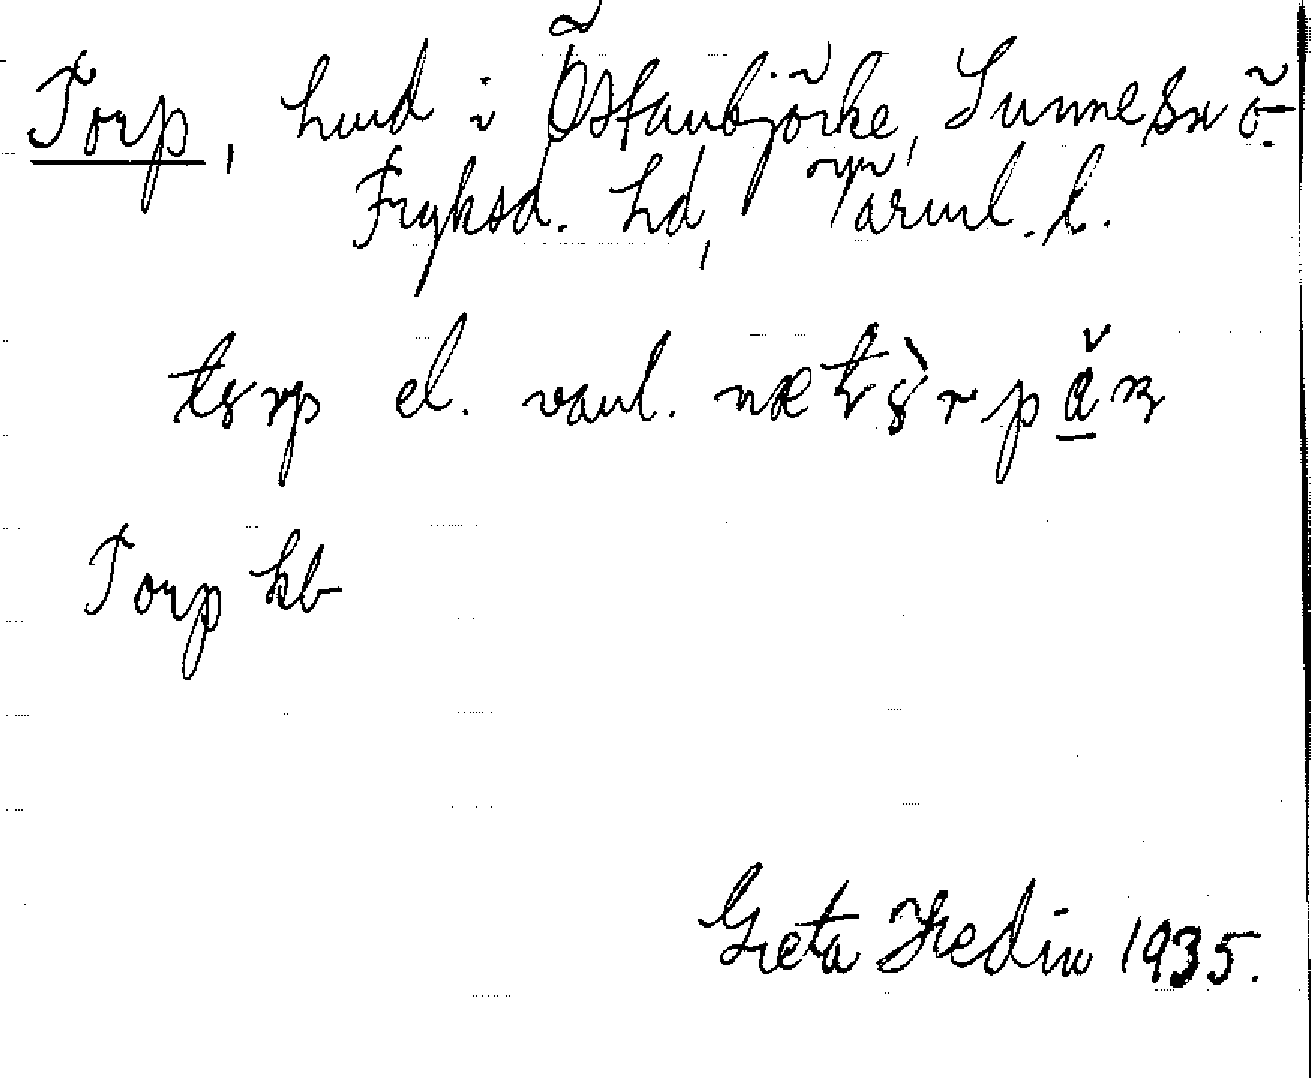 Torp, hmd i Östanbjörke, Sunne sn ö.
Fryksd. hd, Värml. l.
el. vanl.
Torp kb
Greta Hedin 1935.